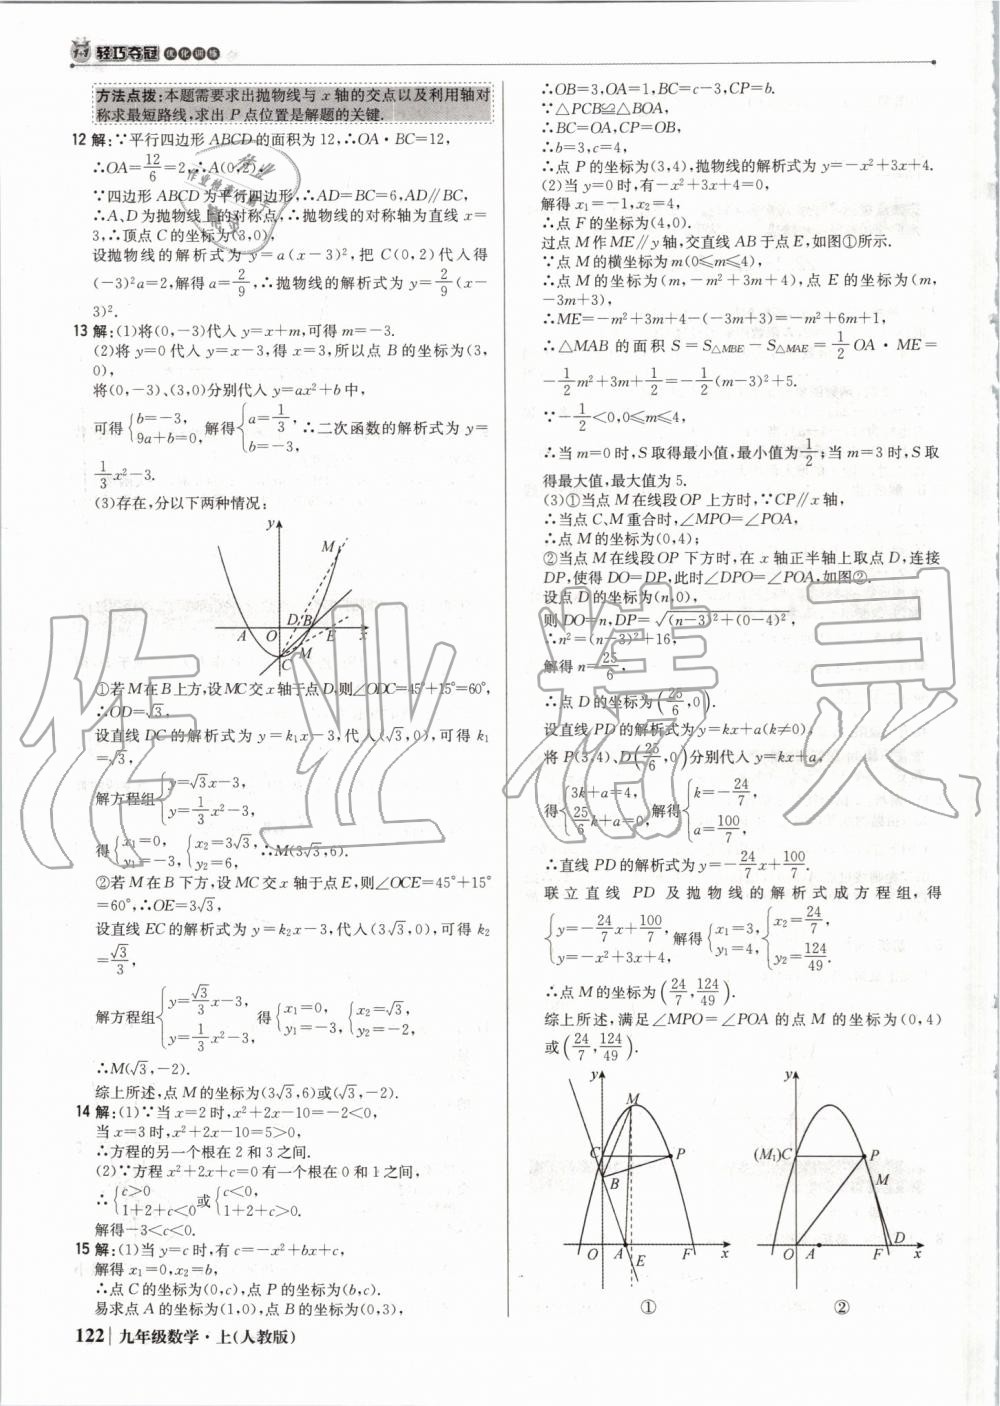 1+1 轻巧夺冠 优化训练
方法点拨:本题需要求出抛物线与 x 轴的交点以及利用轴对
称求最短路线,求出 P 点位置是解题的关键.
12 解:∵平行四边形 ABCD 的面积为 12,∴OA·BC=12,
∴OA=12/6=2,∴A(0,2),
∵四边形 ABCD 为平行四边形,∴AD=BC=6,AD∥BC,
∴A、D 为抛物线上的对称点,∴抛物线的对称轴为直线 x=
3,∴顶点 C 的坐标为(3,0),
设抛物线的解析式为 y=a(x-3)²,把 C(0,2)代入得
(-3)²a=2,解得 a=2/9,∴抛物线的解析式为 y=2/9(x-
3)².
13 解:(1)将(0,-3)代入 y=x+m,可得 m=-3.
(2)将 y=0 代入 y=x-3,得 x=3,所以点 B 的坐标为(3,
0),
将(0,-3)、(3,0)分别代入 y=ax²+b 中,
可得{b=-3, 9a+b=0, 解得{a=1/3, b=-3, ∴二次函数的解析式为 y=
1/3x²-3.
(3)存在,分以下两种情况:
y M D B A O E x C M
①若 M 在 B 上方,设 MC 交 x 轴于点 D,则∠ODC=45°+15°=60°,
∴OD=√3,
设直线 DC 的解析式为 y=k₁x-3,代入(√3,0),可得 k₁
=√3,
解方程组{y=√3x-3, y=1/3x²-3,
得{x₁=0, y₁=-3, {x₂=3√3, y₂=6, ∴M(3√3,6).
②若 M 在 B 下方,设 MC 交 x 轴于点 E,则∠OCE=45°+15°
=60°,∴OE=3√3,
设直线 EC 的解析式为 y=k₂x-3,代入(3√3,0),可得 k₂
=√3/3,
解方程组{y=√3/3x-3, y=1/3x²-3, 得{x₁=0, y₁=-3, {x₂=√3, y₂=-2,
∴M(√3,-2).
综上所述,点 M 的坐标为(3√3,6)或(√3,-2).
14 解:(1)∵当 x=2 时,x²+2x-10=-2<0,
当 x=3 时,x²+2x-10=5>0,
∴方程的另一个根在 2 和 3 之间.
(2)∵方程 x²+2x+c=0 有一个根在 0 和 1 之间,
∴{c>0 1+2+c<0 或{c<0, 1+2+c>0.
解得-3<c<0.
15 解:(1)当 y=c 时,有 c=-x²+bx+c,
解得 x₁=0,x₂=b,
∴点 C 的坐标为(0,c),点 P 的坐标为(b,c).
易求点 A 的坐标为(1,0),点 B 的坐标为(0,3),
122 九年级数学·上(人教版)
∴OB=3,OA=1,BC=c-3,CP=b.
∵△PCB≌△BOA,
∴BC=OA,CP=OB,
∴b=3,c=4,
∴点 P 的坐标为(3,4),抛物线的解析式为 y=-x²+3x+4.
(2)当 y=0 时,有-x²+3x+4=0,
解得 x₁=-1,x₂=4,
∴点 F 的坐标为(4,0).
过点 M 作 ME∥y 轴,交直线 AB 于点 E,如图①所示.
∵点 M 的横坐标为 m(0≤m≤4),
∴点 M 的坐标为(m,-m²+3m+4),点 E 的坐标为(m,
-3m+3),
∴ME=-m²+3m+4-(-3m+3)=-m²+6m+1,
∴△MAB 的面积 S=S△MBE-S△MAE=1/2OA·ME=
-1/2m²+3m+1/2=-1/2(m-3)²+5.
∵-1/2<0,0≤m≤4,
∴当 m=0 时,S 取得最小值,最小值为1/2;当 m=3 时,S 取
得最大值,最大值为 5.
(3)①当点 M 在线段 OP 上方时,∵CP∥x 轴,
∴当点 C、M 重合时,∠MPO=∠POA,
∴点 M 的坐标为(0,4);
②当点 M 在线段 OP 下方时,在 x 轴正半轴上取点 D,连接
DP,使得 DO=DP,此时∠DPO=∠POA,如图②.
设点 D 的坐标为(n,0),
则 DO=n,DP=√(n-3)²+(0-4)²,
∴n²=(n-3)²+16,
解得 n=25/6,
∴点 D 的坐标为(25/6,0).
设直线 PD 的解析式为 y=kx+a(k≠0),
将 P(3,4)、D(25/6,0)分别代入 y=kx+a,
得{3k+a=4, 25/6k+a=0, 解得{k=-24/7, a=100/7,
∴直线 PD 的解析式为 y=-24/7x+100/7.
联立直线 PD 及抛物线的解析式成方程组,得
{y=-24/7x+100/7, y=-x²+3x+4, 解得{x₁=3, y₁=4, {x₂=24/7, y₂=124/49.
∴点 M 的坐标为(24/7,124/49).
综上所述,满足∠MPO=∠POA 的点 M 的坐标为(0,4)
或(24/7,124/49).
y M C P B O A E F x
①
y (M₁)C P M D O A F x
②
作业精灵